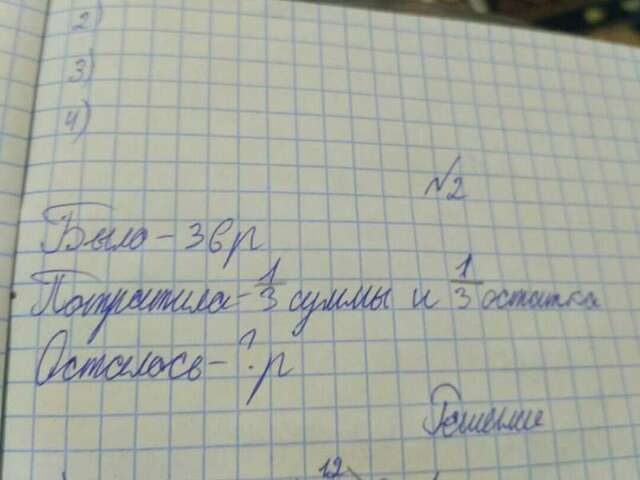 2)
3)
4)
№2
Было - 36 р
Потратила - 1/3 суммы и 1/3 остатка
Осталось - ? р
Решение
12